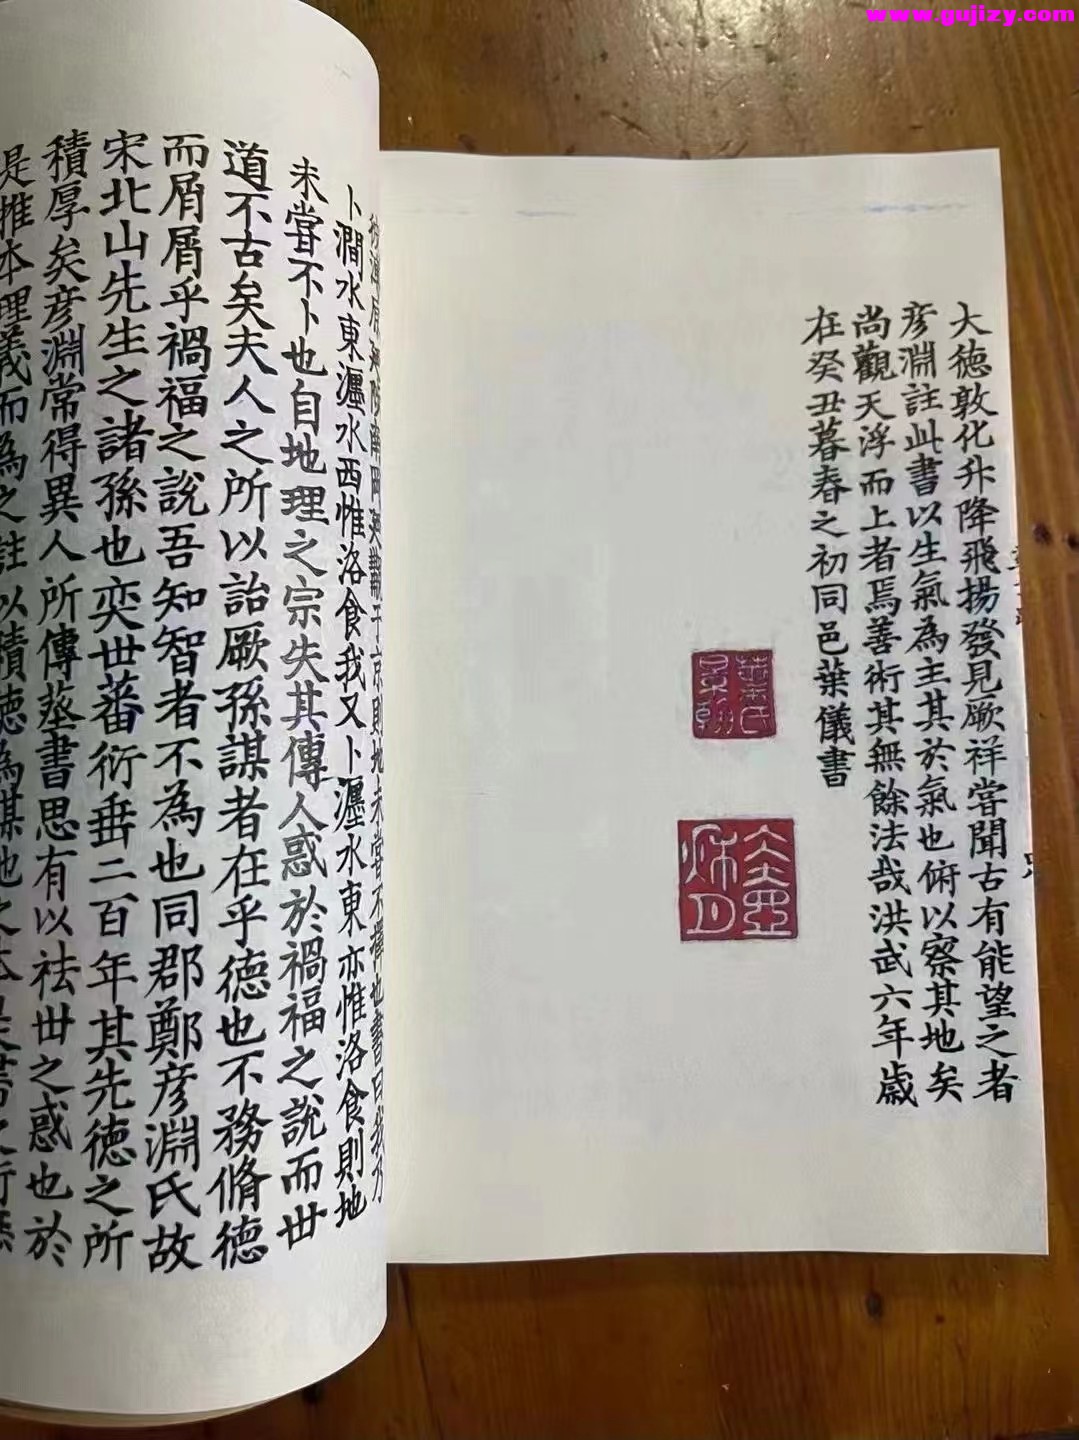 京則地未嘗不擇也書曰我乃
卜澗水東瀍水西惟洛食我又卜瀍水東亦惟洛食則地
未嘗不卜也自地理之宗失其傳人惑於禍福之說而世
道不古矣夫人之所以詒厥孫謀者在乎德也不務脩德
而屑屑乎禍福之說吾知智者不為也同郡鄭彥淵氏故
宋北山先生之諸孫也奕世蕃衍垂二百年其先德之所
積厚矣彥淵常得異人所傳葬書思有以祛世之惑也於
是推本理義而為之註以積德為謀地之本是書之行無
大德敦化升降飛揚發見厥祥嘗聞古有能望之者
彥淵註此書以生氣為主其於氣也俯以察其地矣
尚觀天浮而上者焉善術其無餘法哉洪武六年歲
在癸丑暮春之初同邑葉儀書
葉氏景翰
www.gujizy.com